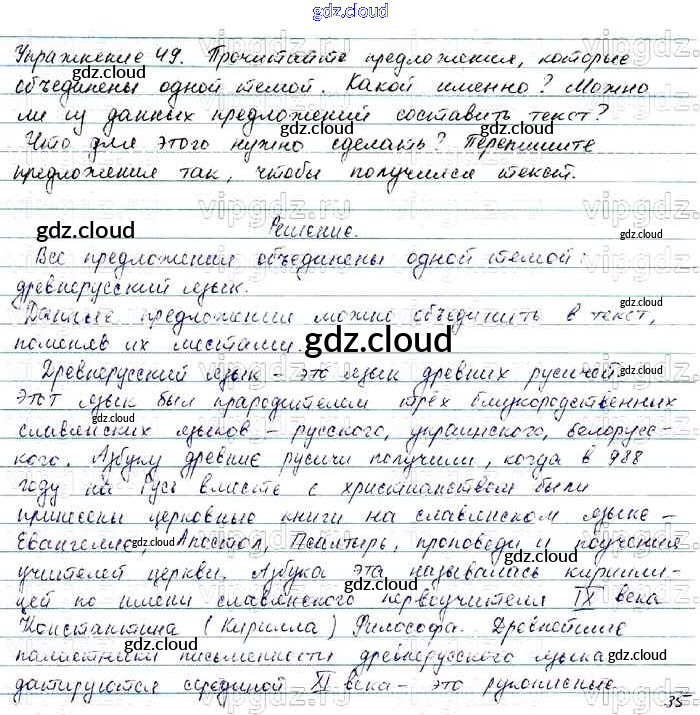 gdz.cloud
Упражнение 49. Прочитайте предложения, которые
объединены одной темой. Какой именно? Можно
ли из данных предложений составить текст?
Что для этого нужно сделать? Перепишите
предложения так, чтобы получился текст.
Решение.
Все предложения объединены одной темой:
древнерусский язык.
Данные предложения можно объединить в текст,
поменяв их местами.
Древнерусский язык - это язык древних русичей.
Этот язык был прародителем трёх близкородственных
славянских языков - русского, украинского, белорусс-
кого. Азбуку древние русичи получили, когда в 988
году на Русь вместе с христианством были
принесены церковные книги на славянском языке -
Евангелие, Апостол, Псалтырь, проповеди и поучения
учителей церкви. Азбука эта называлась кирилли-
цей по имени славянского первоучителя IX века
Константина (Кирилла) Философа. Древнейшие
памятники письменности древнерусского языка
датируются серединой XI века - это рукописные
35